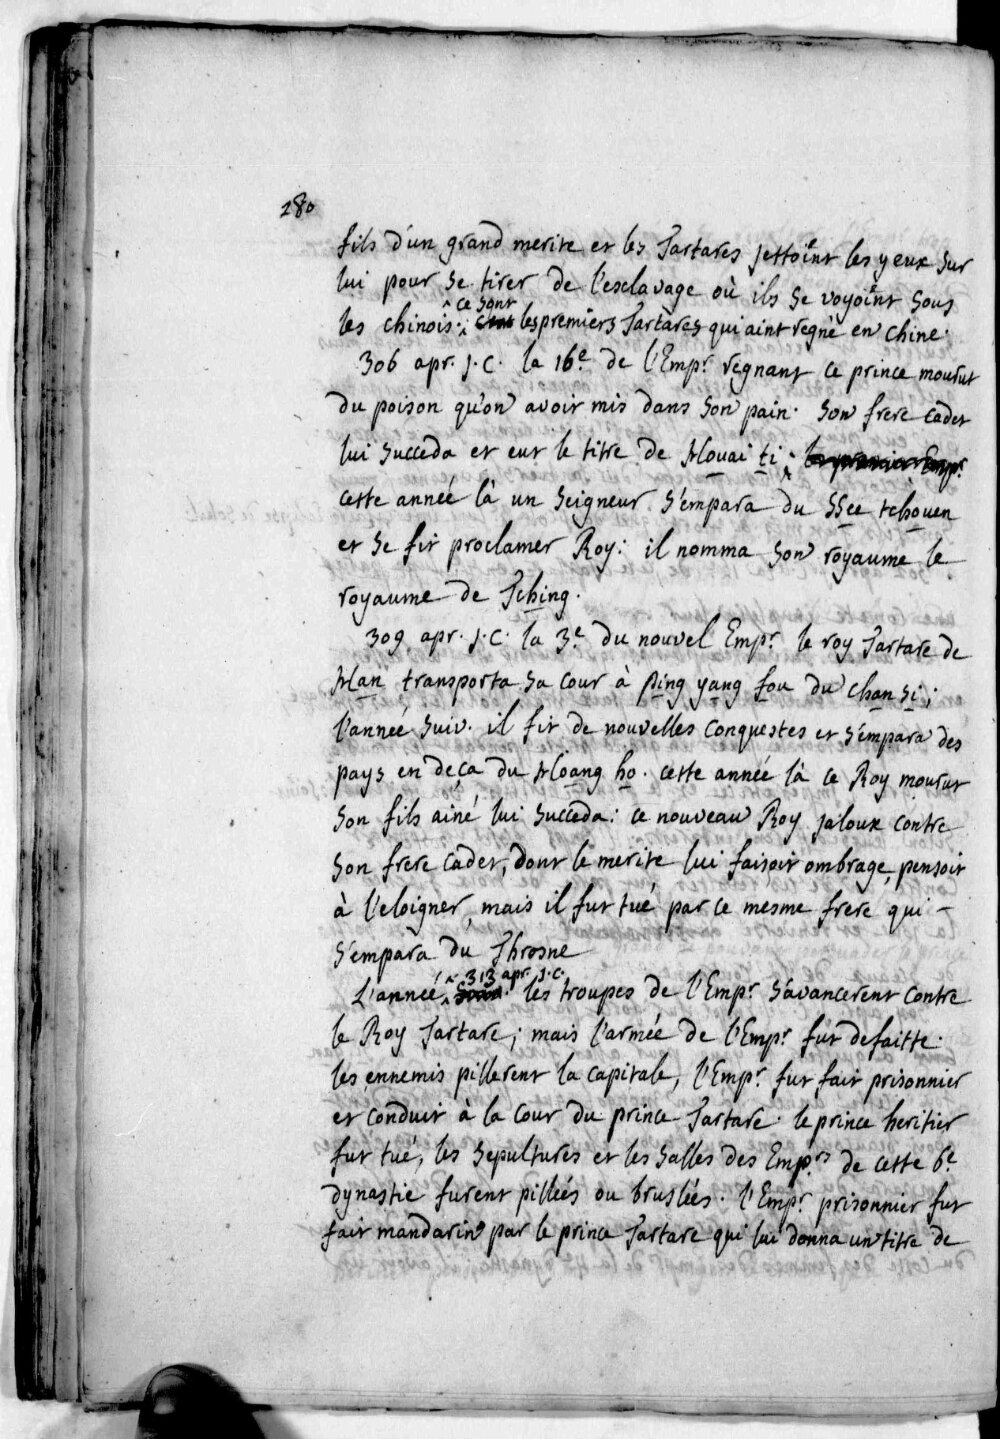 280
fils d'un grand merite et les Tartares jettoint les yeux sur
lui pour se tirer de l'esclavage où ils se voyoint sous
les chinois. ce sont les premiers Tartares qui aint regné en chine.
306 apr. J.C. la 16e de l'Empr. regnant ce prince mourut
du poison qu'on avoit mis dans son pain. son frere cadet
lui succeda et eut le titre de Houai ti; le premier Empr.
cette année là un seigneur s'empara du ssee tchouen
et se fit proclamer Roy: il nomma son royaume le
royaume de Tching.
309 apr. J.C. la 3e du nouvel Empr. le roy Tartare de
Han transporta sa cour à ping yang fou du chan si;
l'année suiv. il fit de nouvelles conquestes et s'empara des
pays en deça du Hoang ho. cette année là ce Roy mourut
son fils ainé lui succeda: ce nouveau Roy jaloux contre
son frere cadet, dont le merite lui faisoit ombrage, pensoit
à l'eloigner, mais il fut tué par ce mesme frere qui -
s'empara du Throsne
L'année 313 apr. J.C. les troupes de l'Empr. s'avancerent contre
le Roy Tartare; mais l'armée de l'Empr. fut defaitte.
les ennemis pillerent la capitale, l'Empr. fut fait prisonnier
et conduit à la cour du prince Tartare. le prince heritier
fut tué, les sepultures et les salles des Emprs. de cette 6e
dynastie furent pillées ou bruslées. l'Empr. prisonnier fut
fait mandarin par le prince Tartare qui lui donna un titre de